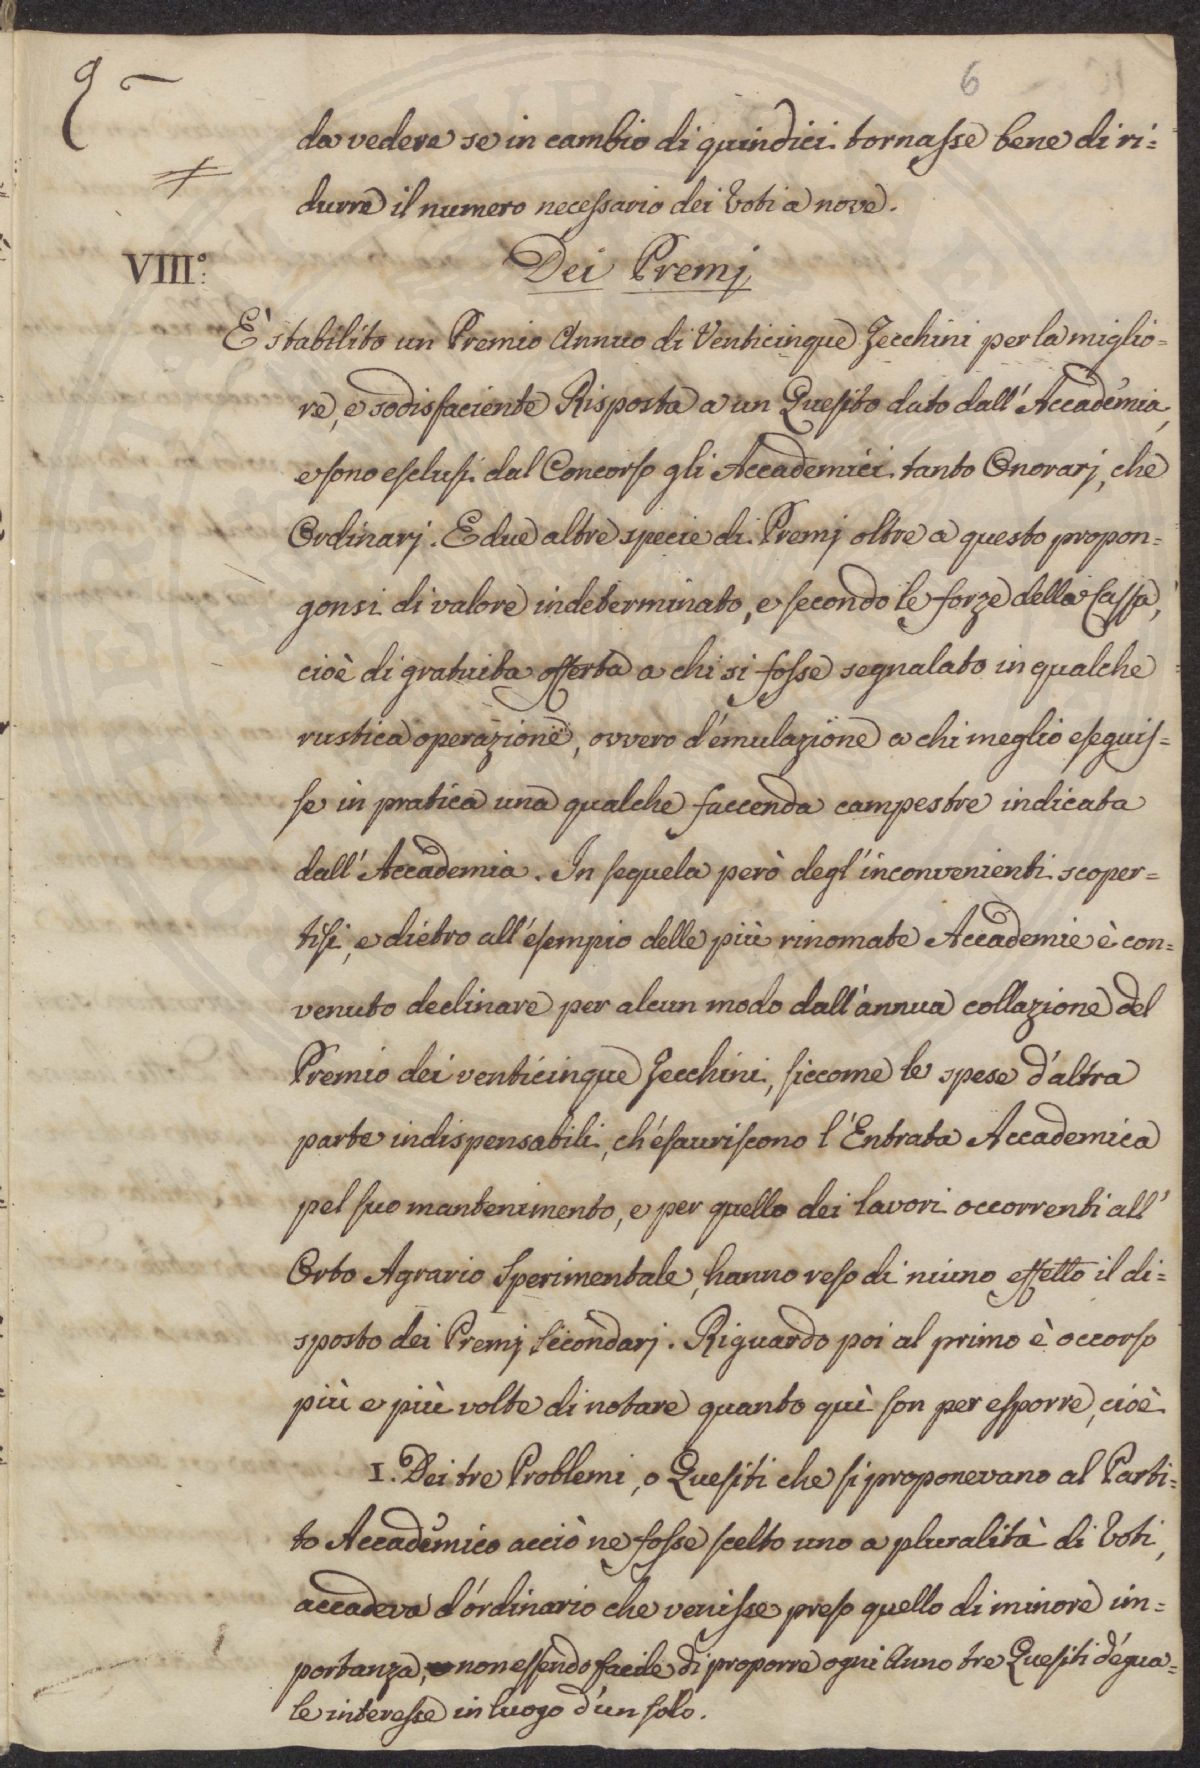 6
da vedere se in cambio di quindici tornasse bene di ri=
durre il numero necessario dei Voti a nove.
VIII°: Dei Premj
È stabilito un Premio Annuo di Venticinque Zecchini per la miglio=
re, e sodisfaciente Risposta a un Quesito dato dall'Accademia,
e sono esclusi dal Concorso gli Accademici tanto Onorarj, che
Ordinarj. E due altre specie di Premj oltre a questo propon=
gonsi di valore indeterminato, e secondo le forze della Cassa,
cioè di gratuita offerta a chi si fosse segnalato in qualche
rustica operazione, ovvero d'emulazione a chi meglio eseguis=
se in pratica una qualche faccenda campestre indicata
dall'Accademia. In sequela però degl'inconvenienti scoper=
tisi, e dietro all'esempio delle più rinomate Accademie è con=
venuto declinare per alcun modo dall'annua collazione del
Premio dei venticinque Zecchini, siccome le spese d'altra
parte indispensabili, ch'esauriscono l'Entrata Accademica
pel suo mantenimento, e per quello dei lavori occorrenti all'
Orto Agrario Sperimentale, hanno reso di niuno effetto il di=
sposto dei Premj secondarj. Riguardo poi al primo è occorso
più e più volte di notare quanto quì son per esporre, cioè
1. Dei tre Problemi, o Quesiti che si proponevano al Parti=
to Accademico acciò ne fosse scelto uno a pluralità di Voti,
accadeva d'ordinario che venisse preso quello di minore im=
portanza, non essendo facile di proporre ogni Anno tre Quesiti d'egua=
le interesse in luogo d'un solo.